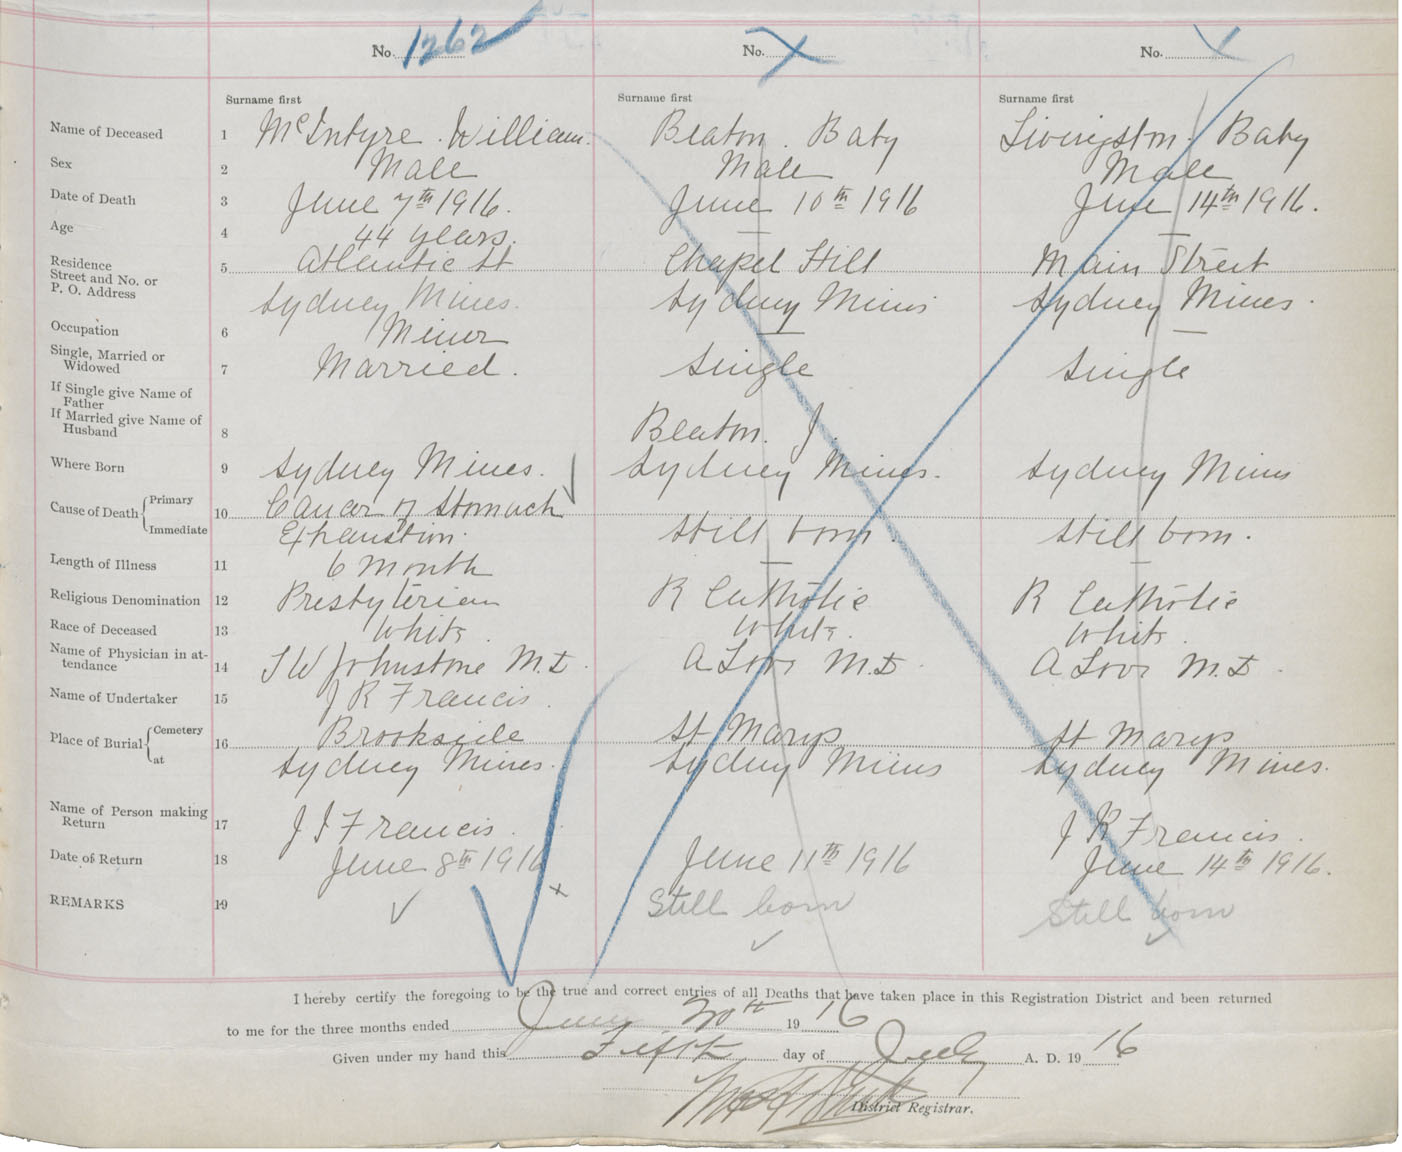 No. 1262 No. X No. X
Surname first Surname first Surname first
Name of Deceased 1 McIntyre. William. Beaton. Baby Livingston. Baby
Sex 2 Male Male Male
Date of Death 3 June 7th 1916. June 10th 1916 June 14th 1916.
Age 4 44 years. — —
Residence 5 Atlantic St Chapel Hill Main Street
Street and No. or
P. O. Address Sydney Mines. Sydney Mines Sydney Mines.
Occupation 6 Miner — —
Single, Married or
Widowed 7 Married. Single Single
If Single give Name of
Father
If Married give Name of
Husband 8 Beaton. J.
Where Born 9 Sydney Mines. Sydney Mines. Sydney Mines
Cause of Death { Primary 10 Cancer of Stomach
Immediate Exhaustion. Still born. Still born.
Length of Illness 11 6 Month — —
Religious Denomination 12 Presbyterian R Catholic R Catholic
Race of Deceased 13 White. White. White.
Name of Physician in at-
tendance 14 Johnstone M.D. A M.D. A M.D.
Name of Undertaker 15 J R Francis.
Place of Burial { Cemetery 16 Brookside St Marys St Marys
at Sydney Mines. Sydney Mines Sydney Mines.
Name of Person making
Return 17 Francis. J R Francis.
Date of Return 18 June 8th 1916 June 11th 1916 June 14th 1916.
REMARKS 19 Still born Still born
I hereby certify the foregoing to be the true and correct entries of all Deaths that have taken place in this Registration District and been returned
to me for the three months ended June 30th 1916
Given under my hand this Fifth day of July A. D. 1916
District Registrar.